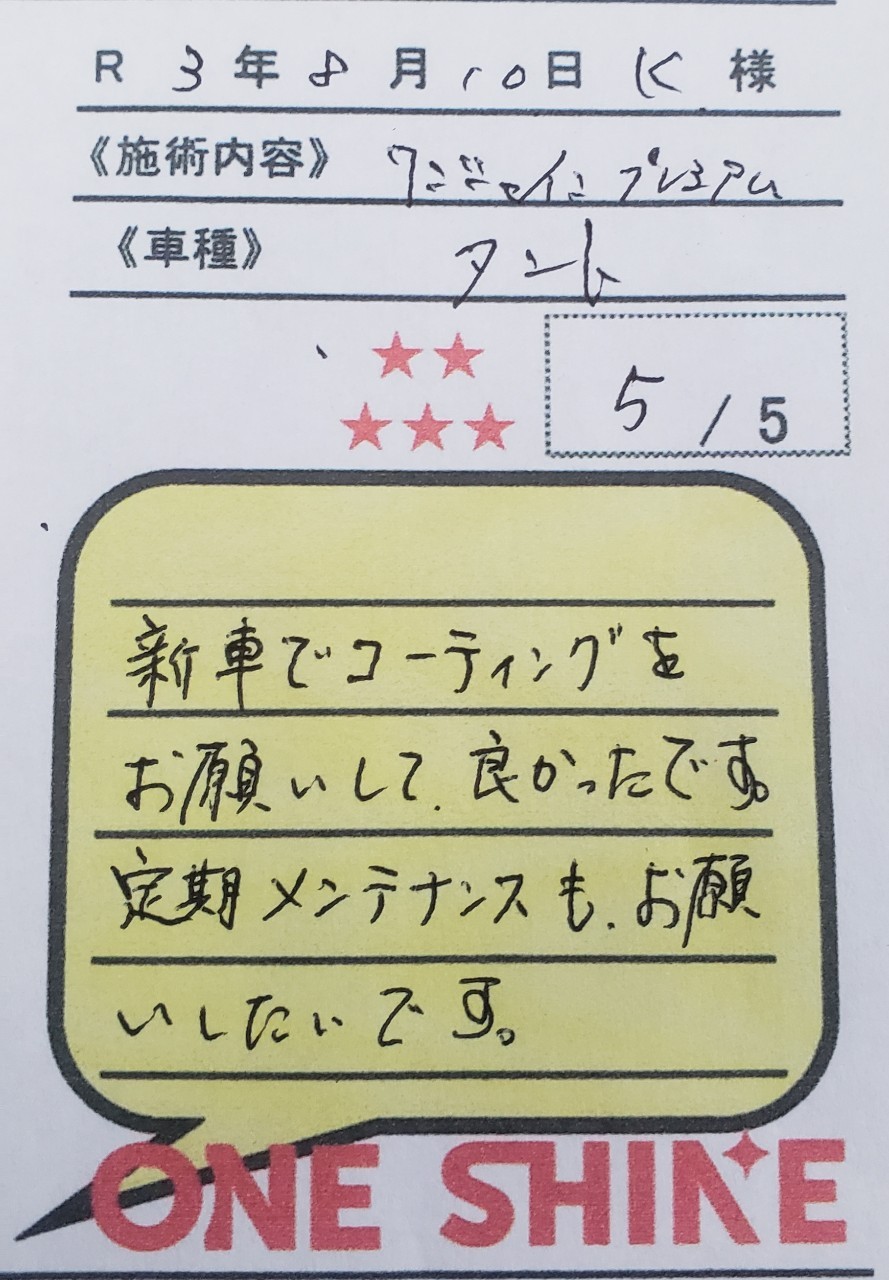 R 3年8月10日 K 様
《施術内容》 ワンシャイン プレミアム
《車種》 タント
5 / 5
新車でコーティングを
お願いして、良かったです。
定期メンテナンスも、お願
いしたいです。
ONE SHINE